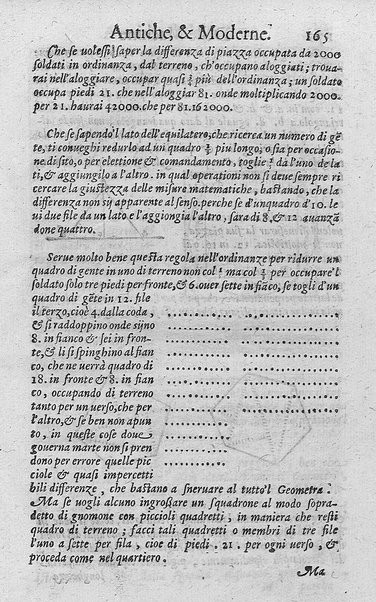 Antiche, & Moderne. 165
Che se volessi saper la differenza di piazza occupata da 2000
soldati in ordinanza, dal terreno, ch'occupano aloggiati; troua-
rai nell'aloggiare, occupar quasi più dell'ordinanza; un soldato
occupa piedi 21. che nell'aloggiar 81. onde moltiplicando 2000.
per 21. haurai 42000. che per 81. 162000.
Che se sapendo'l lato dell'equilatero, che ricerca un numero di gẽ
te, ti conueghi redurlo ad un quadro più longo, o sia per occasio-
ne di sito, o per elettione & comandamento, toglie da l'uno de la
ti, & aggiungilo a l'altro. in qual operationi non si deue sempre ri
cercare la giustezza delle misure matematiche, bastando, che la
differenza non sij apparente al senso. perche se d'un quadro d'10. le
vi due file da un lato e l'aggiongia l'altro, sara di 8, & 12 auanzã
done quattro.
Serue molto bene questa regola nell'ordinanze per ridurre un
quadro di gente in uno di terreno non col ma col per occupare'l
soldato solo tre piedi per fronte, & 6. ouer sette in fiãco, se togli d'un
quadro di gẽte in 12. file
il terzo, cioè 4. dalla coda,
& si raddoppino onde sijno
8. in fianco & sei in fron-
te, & li si spinghino al fian
co, che ne uerrà quadro di
18. in fronte & 8. in fian
co, occupando di terreno
tanto per un uerso, che per
l'altro, & se ben non apun
to, in queste cose doue
gouerna marte non si pren
dono per errore quelle pic
ciole & quasi impercetti
bili differenze, che bastano a sneruare al tutto'l Geometra.
Ma se uogli alcuno ingrossare un squadrone al modo sopra-
detto di gnomone con piccioli quadretti, in maniera che resti
quadro di terreno; facci tali quadretti o membri di tre file
l'uno a sette per fila, cioe di piedi. 21. per ogni uerso, &
proceda come nel quartiero.
Ma